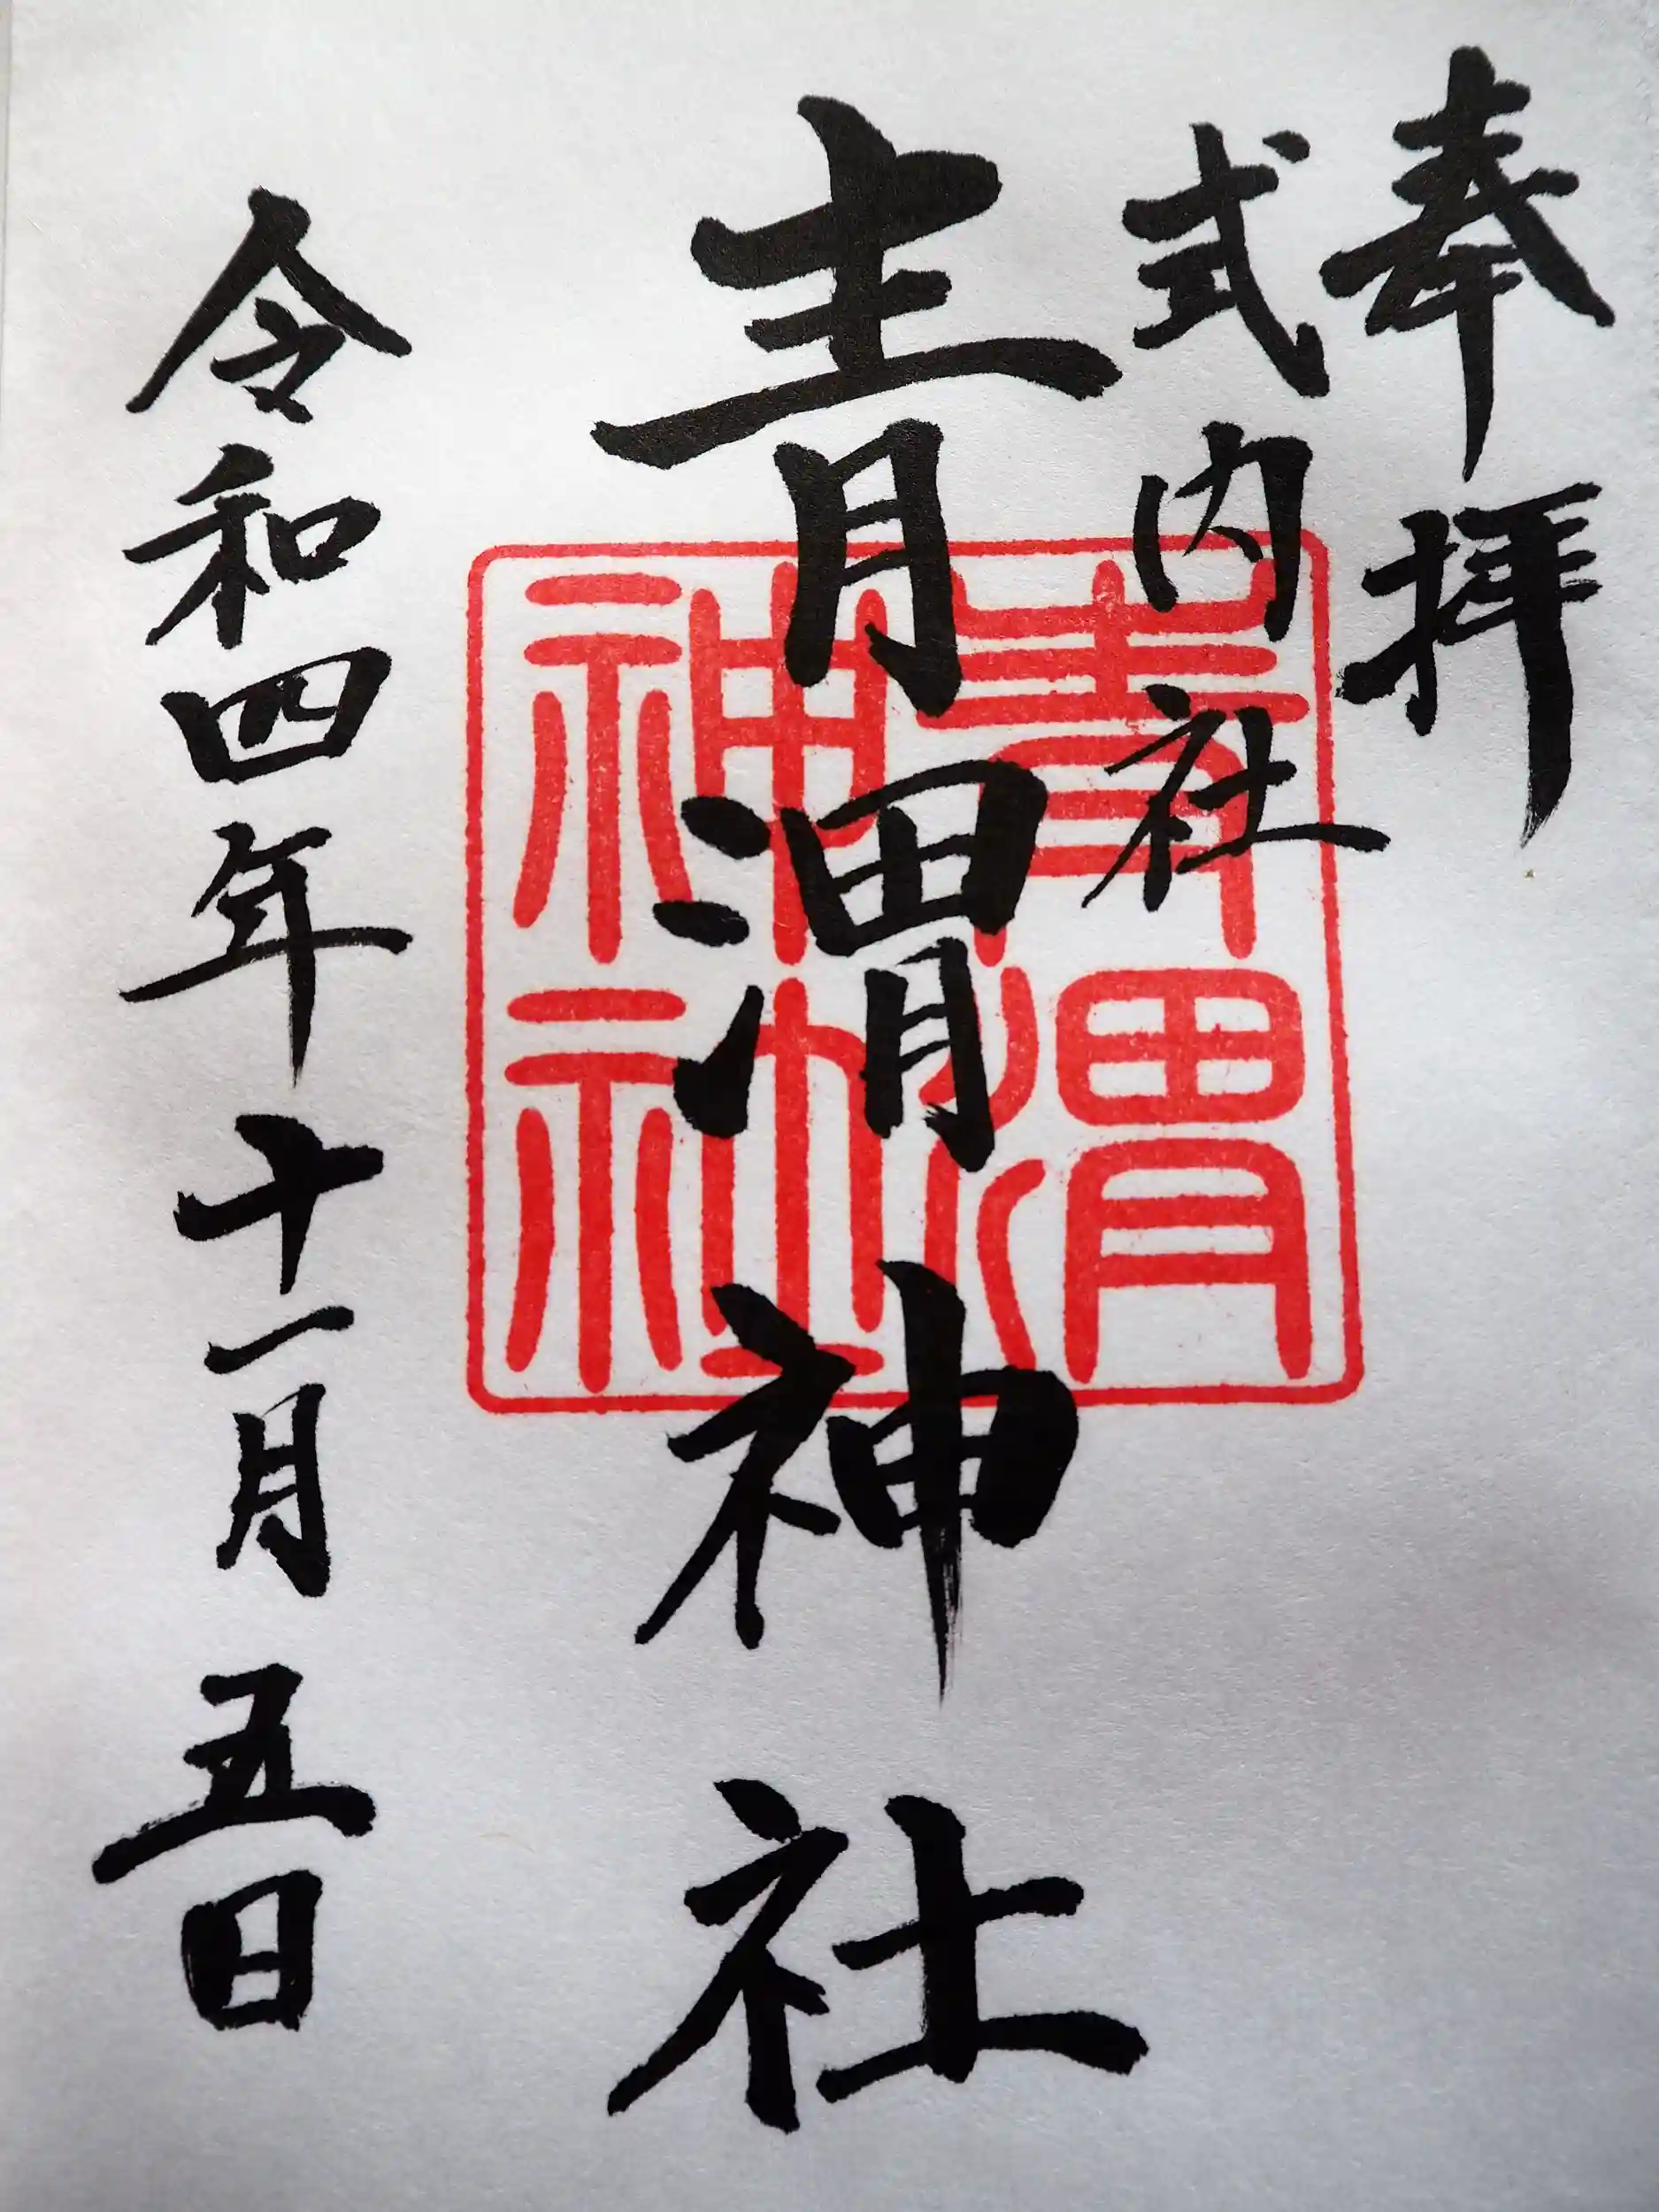 奉拝
式内社
青渭神社
青渭
神社
令和四年十一月五日